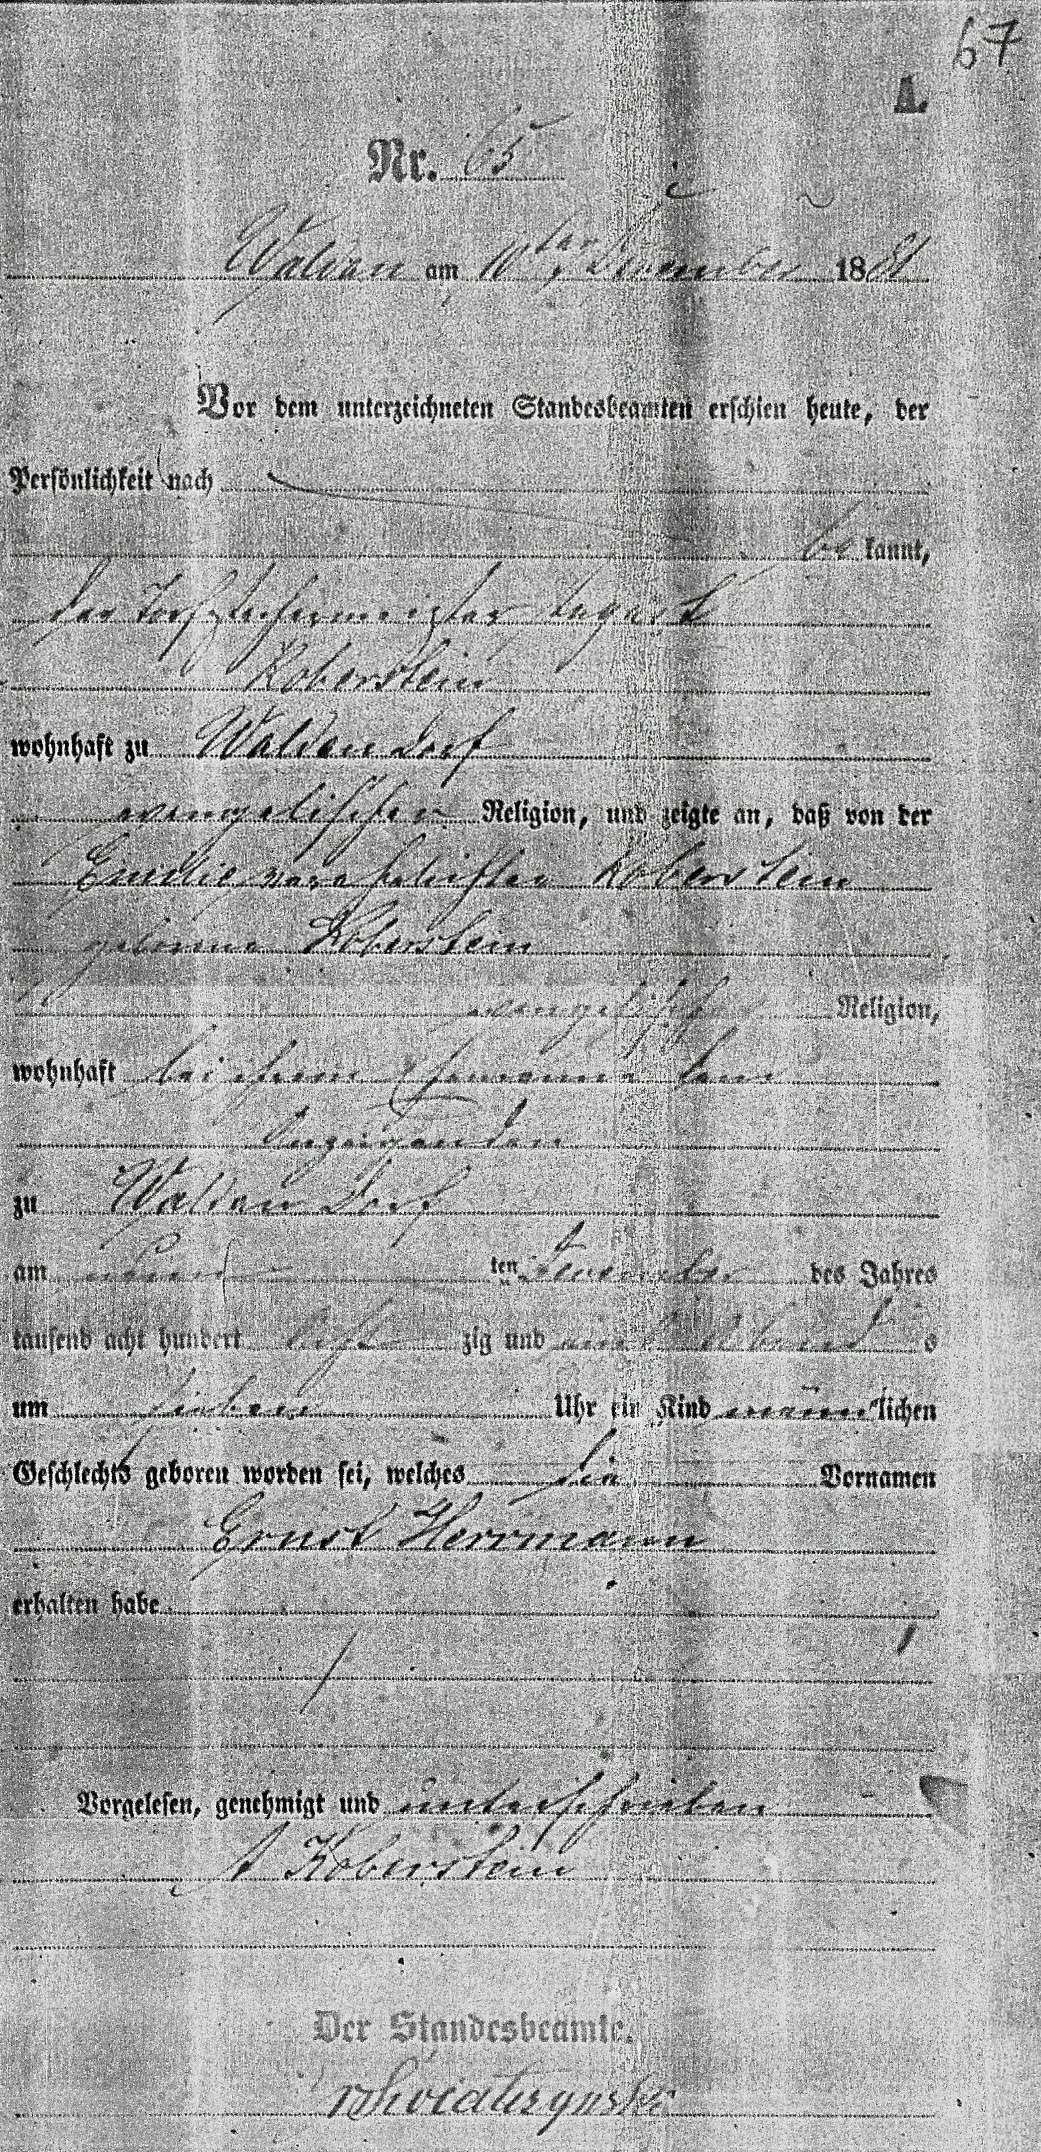 67
A.
Nr. 65
Waldau am 10ten December 1881
Vor dem unterzeichneten Standesbeamten erschien heute, der
Persönlichkeit nach
bekannt,
der August
Koberstein
wohnhaft zu Waldau Dorf
evangelischer Religion, und zeigte an, daß von der
Emilie verehelichten Koberstein
geborene Koberstein
evangelischer Religion,
wohnhaft bei ihrem Ehemanne dem
Anzeigenden
zu Waldau Dorf
am neun ten December des Jahres
tausend acht hundert acht zig und ein Abends
um sieben Uhr ein Kind männlichen
Geschlechts geboren worden sei, welches die Vornamen
Ernst Herrmann
erhalten habe.
Vorgelesen, genehmigt und unterschrieben
A Koberstein
Der Standesbeamte.